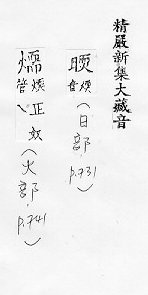 精嚴新集大藏音
㬉 煗音(日部,p.731)
煗正奴管〻(火部,p.741)